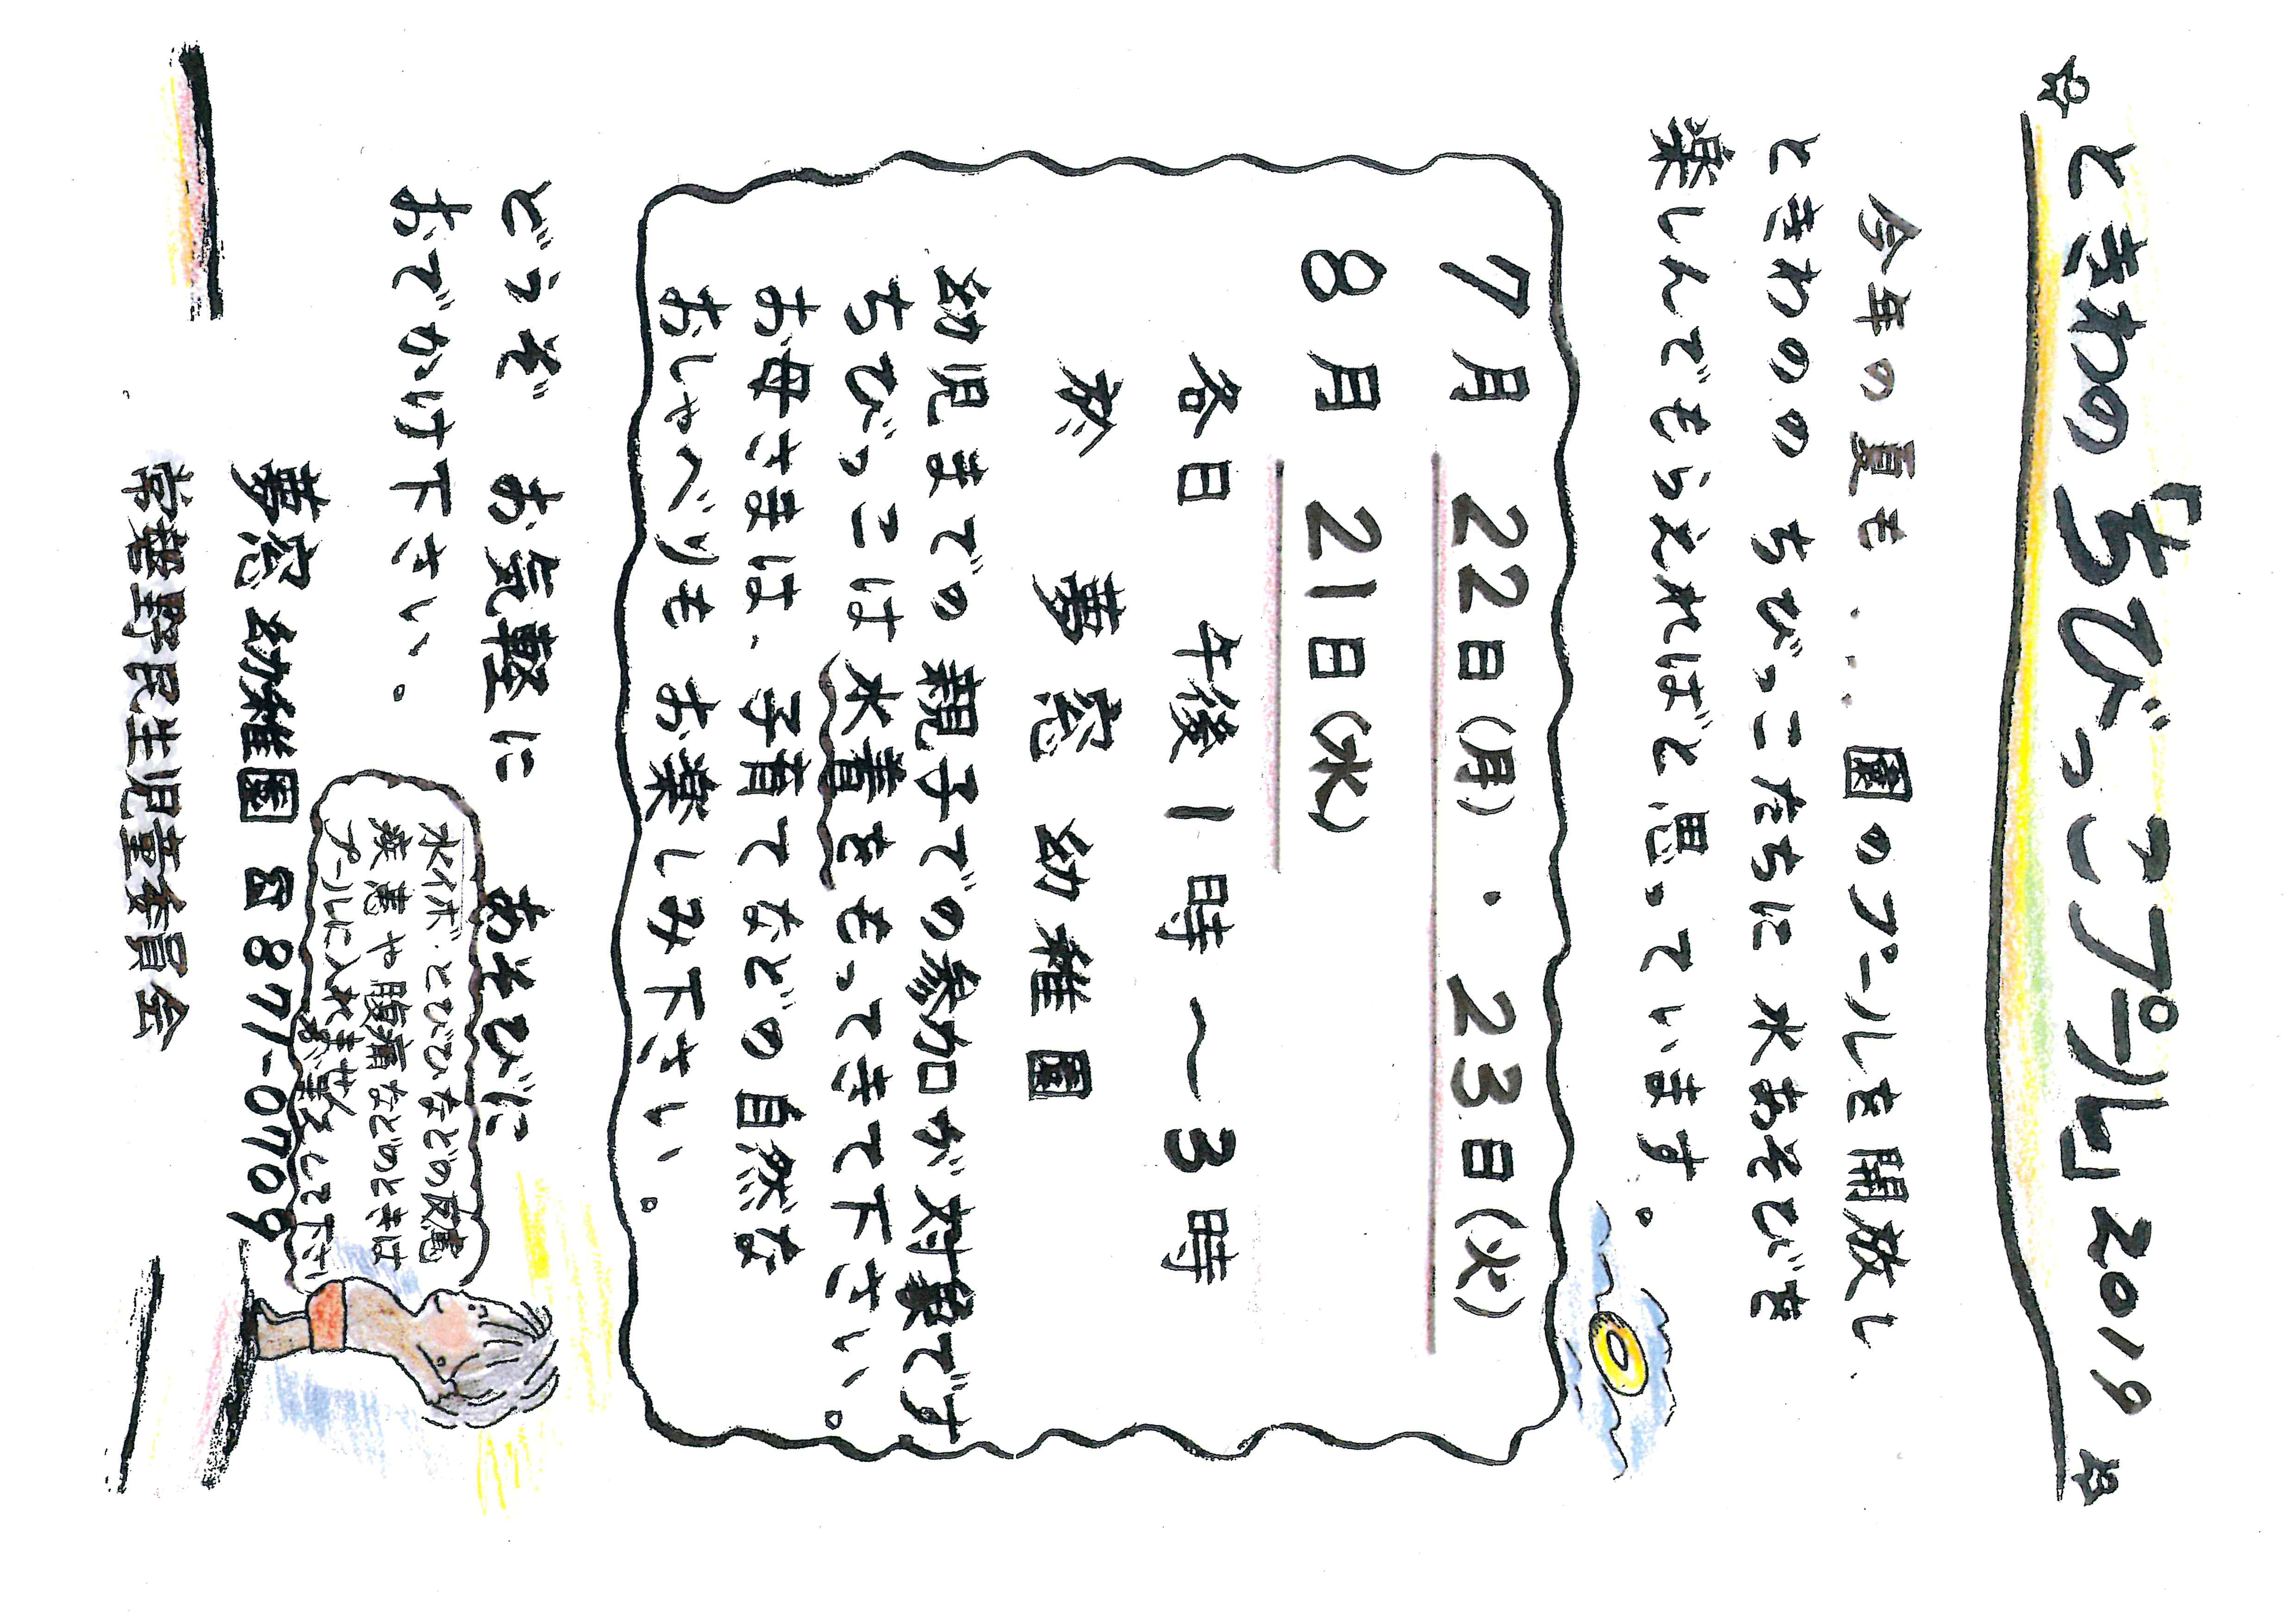 ときわの『ちびっこプール』2019
今年の夏も・・・・園のプールを開放し
ときわのの ちびっこたちに 水あそびを
楽しんでもらえればと思っています。
7月 22日(月)・23日(火)
8月 21日(水)
各日 午後1時〜3時
於 夢窓幼稚園
幼児までの 親子での参加が対象です
ちびっこは水着をもってきて下さい。
お母さまは、子育てなどの自然な
おしゃべりも お楽しみ下さい。
どうぞ お気軽に あそびに
おでかけ下さい。
水イボ・とびひなどの皮膚
疾患や腹痛などのときは
プールに入れません
夢窓幼稚園 ☎871-0709
常磐野民生児童委員会